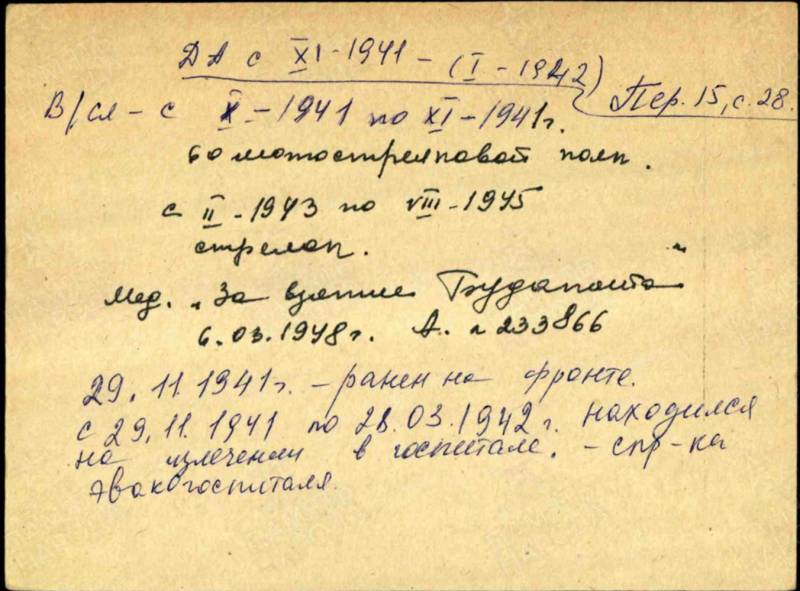 ДА с XI-1941 - (I - 1942)
Пер. 15, с. 28.
В/сл - с X - 1941 по XI - 1941г.
60 мотострелковой полк.
с II - 1943 по VIII - 1945
стрелок.
Мед. „За взятие Будапешта"
6.03.1948г. А. № 233866
29.11.1941г. - ранен на фронте.
с 29.11.1941 по 28.03.1942г. находился
на излечении в госпитале. - спр-ка
эвакогоспиталя.